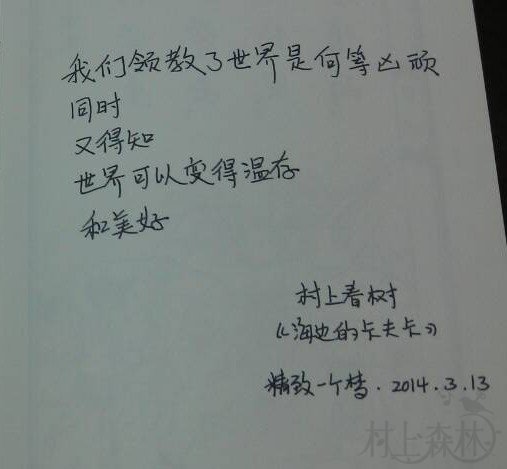 我们领教了世界是何等凶顽
同时
又得知
世界可以变得温存
和美好
村上春树
《海边的卡夫卡》
精致一个梦.2014.3.13
村上森林